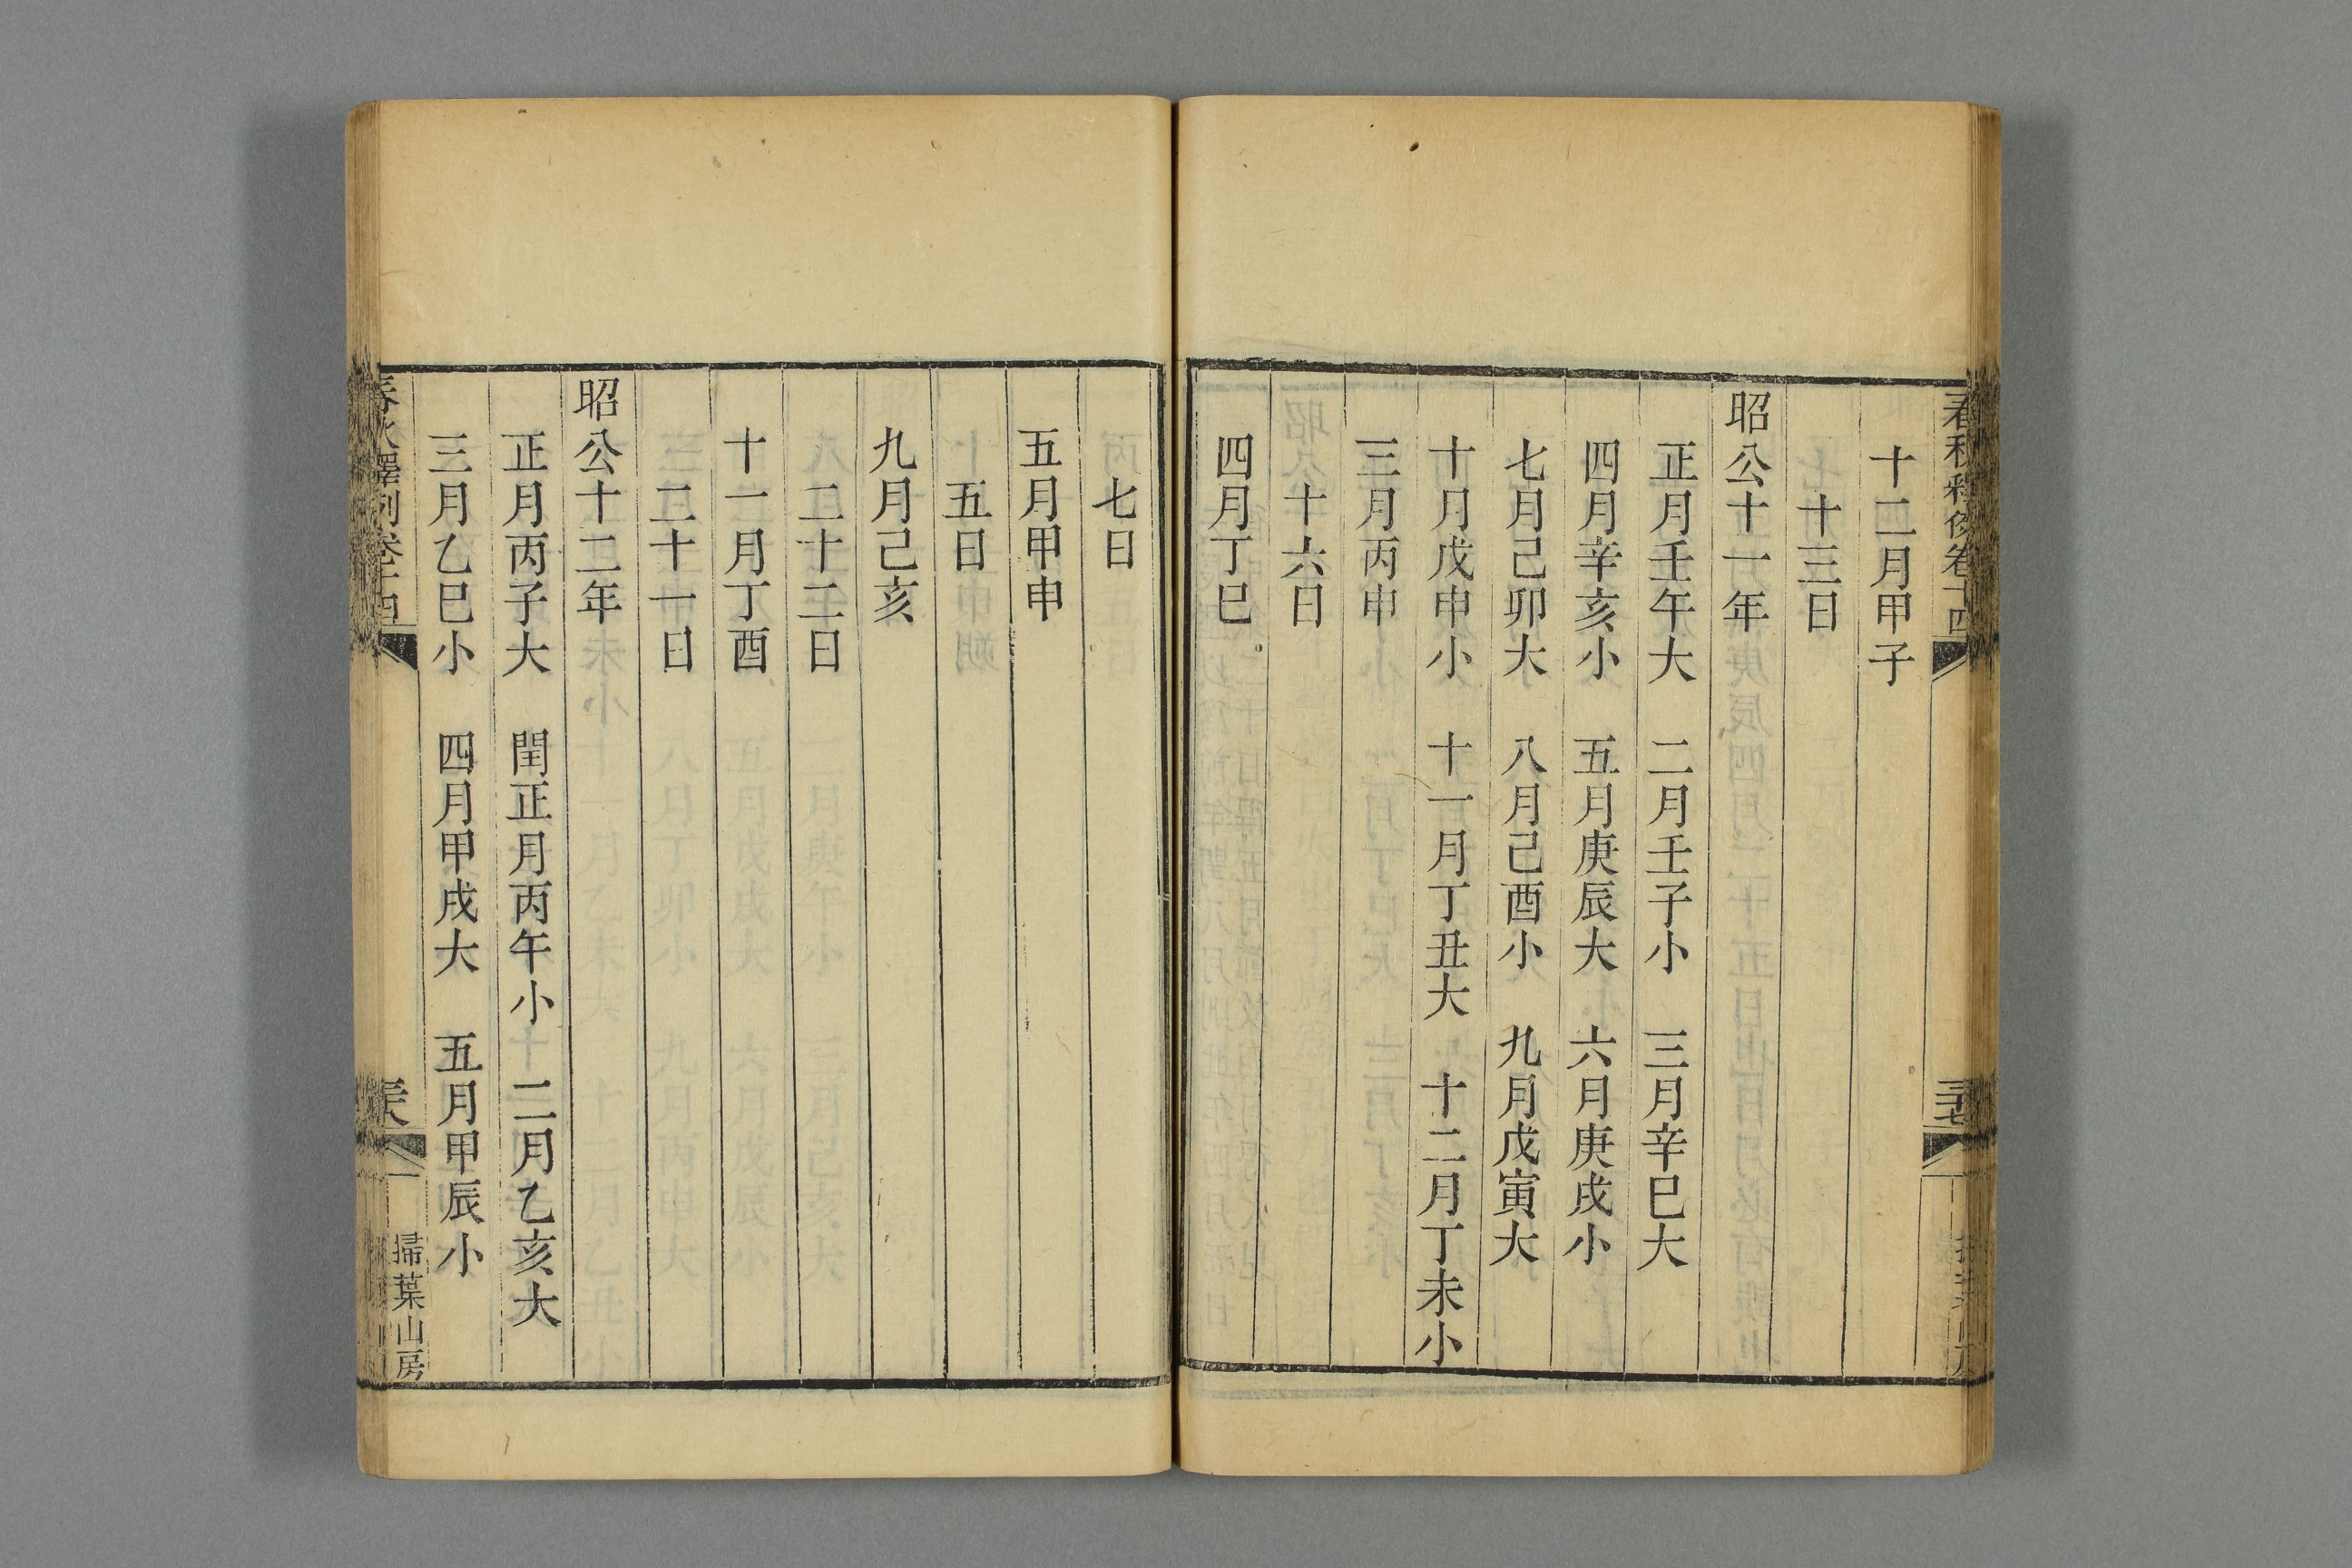 十二月甲子
十三日
昭公十一年
正月壬午大　二月壬子小　三月辛巳大
四月辛亥小　五月庚辰大　六月庚戌小
七月己卯大　八月己酉小　九月戊寅大
十月戊申小　十一月丁丑大　十二月丁未小
三月丙申
十六日
四月丁巳
七日
五月甲申
五日
九月己亥
二十二日
十一月丁酉
二十一日
昭公十二年
正月丙子大　閏正月丙午小　二月乙亥大
三月乙巳小　四月甲戌大　五月甲辰小
春秋釋例卷十四
掃葉山房